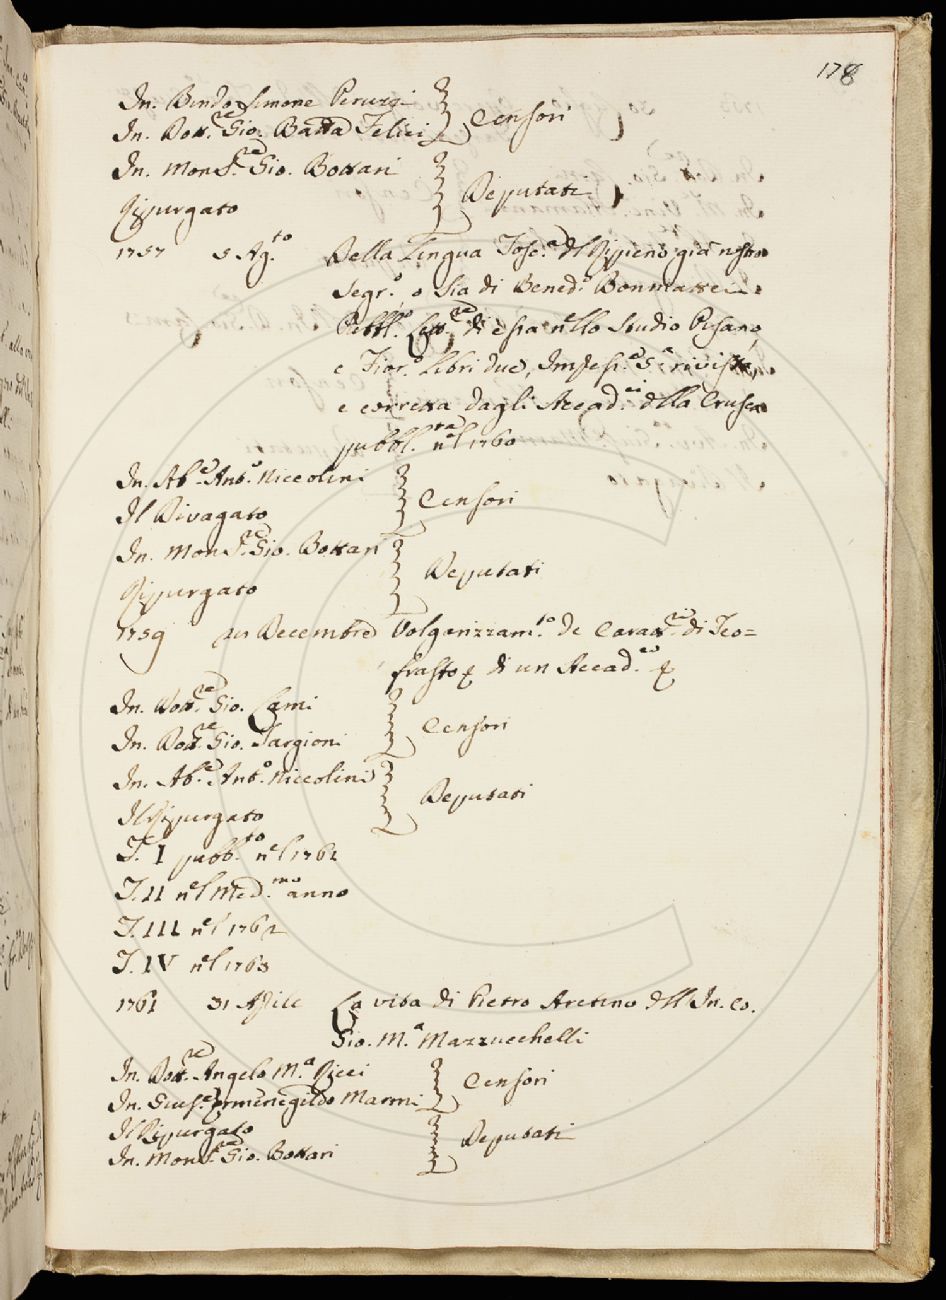 178
In. Bindo Simone Peruzzi
In. Dott.re Gio. Batta Felici
Censori
In. Monsr.e Gio. Bottari
Ripurgato
Deputati
1757 5 Ag.to Della Lingua Tosc.a del Ripieno già nstro
Segr.o, o sia di Bened.o Bonmattei
Pubbl.o Lett.re di essa nello Studio Pisano,
e Fior.o Libri due, Impress.e 5.a rivista,
e corretta dagli Accad.ci della Crusca
pubbl.ta nel 1760
In. Ab.e Ant.o Niccolini
Il Divagato
Censori
In. Monsr.e Gio. Bottari
Ripurgato
Deputati
1759 Decembre Volgarizzam.to de Caratt.ri di Teo=
frasto di un Accad.co
In. Dott.re Gio. Lami
In. Dott.re Gio. Targioni
Censori
In. Ab.e Ant.o Niccolini
Il Ripurgato
Deputati
T. I pubb.to nel 1761
T. II nel med.mo anno
T. III nel 1762
T. IV nel 1763
1761 31 Aprile La vita di Pietro Aretino dell In. Co.
Gio. M.a Mazzucchelli
In. Dott.re Angelo M.a Ricci
In. Giuse.e Ermenegildo Marmi
Censori
Il Ripurgato
In. Monsr.e Gio. Bottari
Deputati